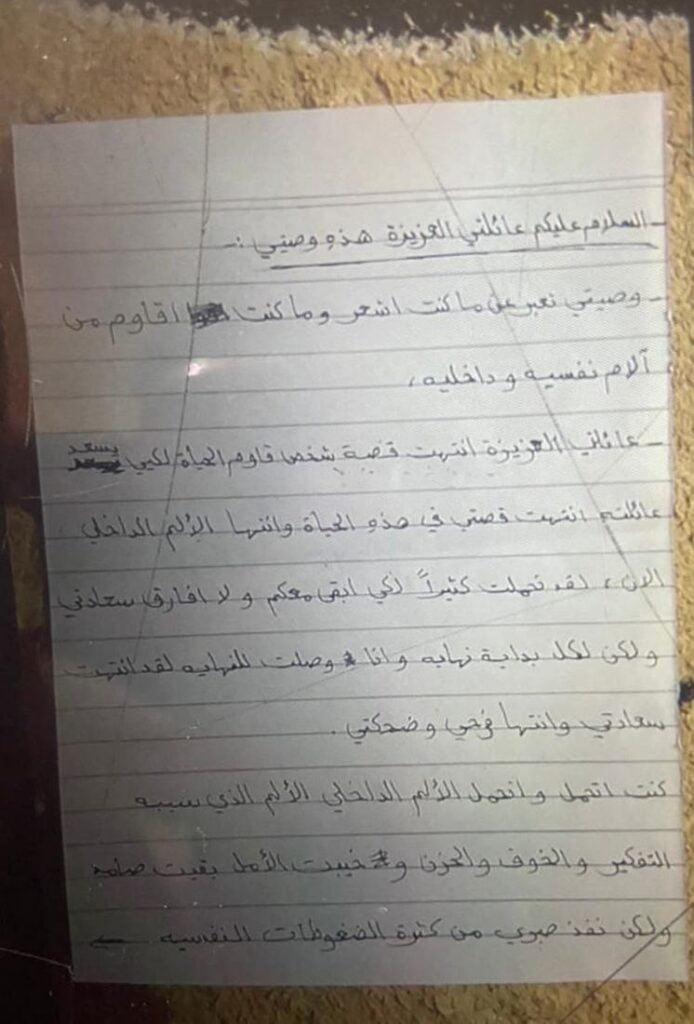 - السلام عليكم عائلتي العزيزة هذه وصيتي :-
- وصيتي تعبر عن ما كنت اشعر وما كنت اقاوم من
آلام نفسيه و داخليه ،
- عائلتي العزيزة انتهت قصة شخص قاوم الحياة لكي يسعد
عائلته انتهت قصتي في هذه الحياة وانتها الألم الداخلي
الان ، لقد تحملت كثيراً لكي ابقى معكم و لا افارق سعادتي
ولكن لكل بداية نهايه وانا وصلت للنهايه لقد انتهت
سعادتي وانتها فرحي وضحكتي .
كنت اتحمل و اتحمل الألم الداخلي الألم الذي سببه
التفكير والخوف والحزن و خيبت الأمل بقيت صامد
ولكن نفذ صبري من كثرة الضغوطات النفسيه ←